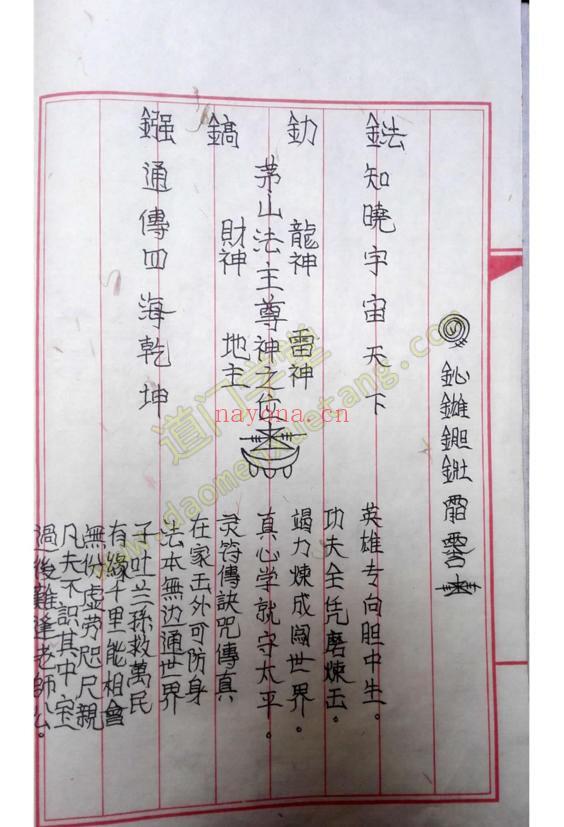 鉣知曉宇宙天下
釛
龍神 雷神
茅山法主尊神之位
鎬
財神 地主
鏹通傳四海乾坤
英雄专向胆中生。
功夫全凭磨煉出。
竭力煉成闖世界。
真心学就守太平。
灵符傳訣咒傳真
在家出外可防身
法本無边通世界
子叶兰孫救萬民
有緣千里能相會
無份虚劳咫尺親
凡夫不識其中宝
過後難逢老師公。
道门学堂
www.daomenxuetang.com
nayona.cn